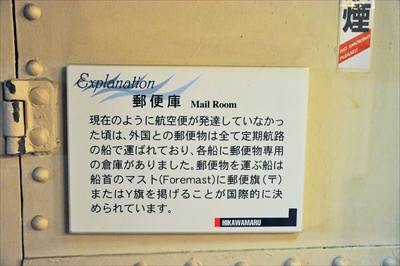 煙
NO SMOKING
PLEASE!!
Explanation
郵便庫 Mail Room
現在のように航空便が発達していなかっ
た頃は、外国との郵便物は全て定期航路
の船で運ばれており、各船に郵便物専用
の倉庫がありました。郵便物を運ぶ船は
船首のマスト(Foremast)に郵便旗(〒)
またはY旗を掲げることが国際的に決
められています。
HIKAWAMARU